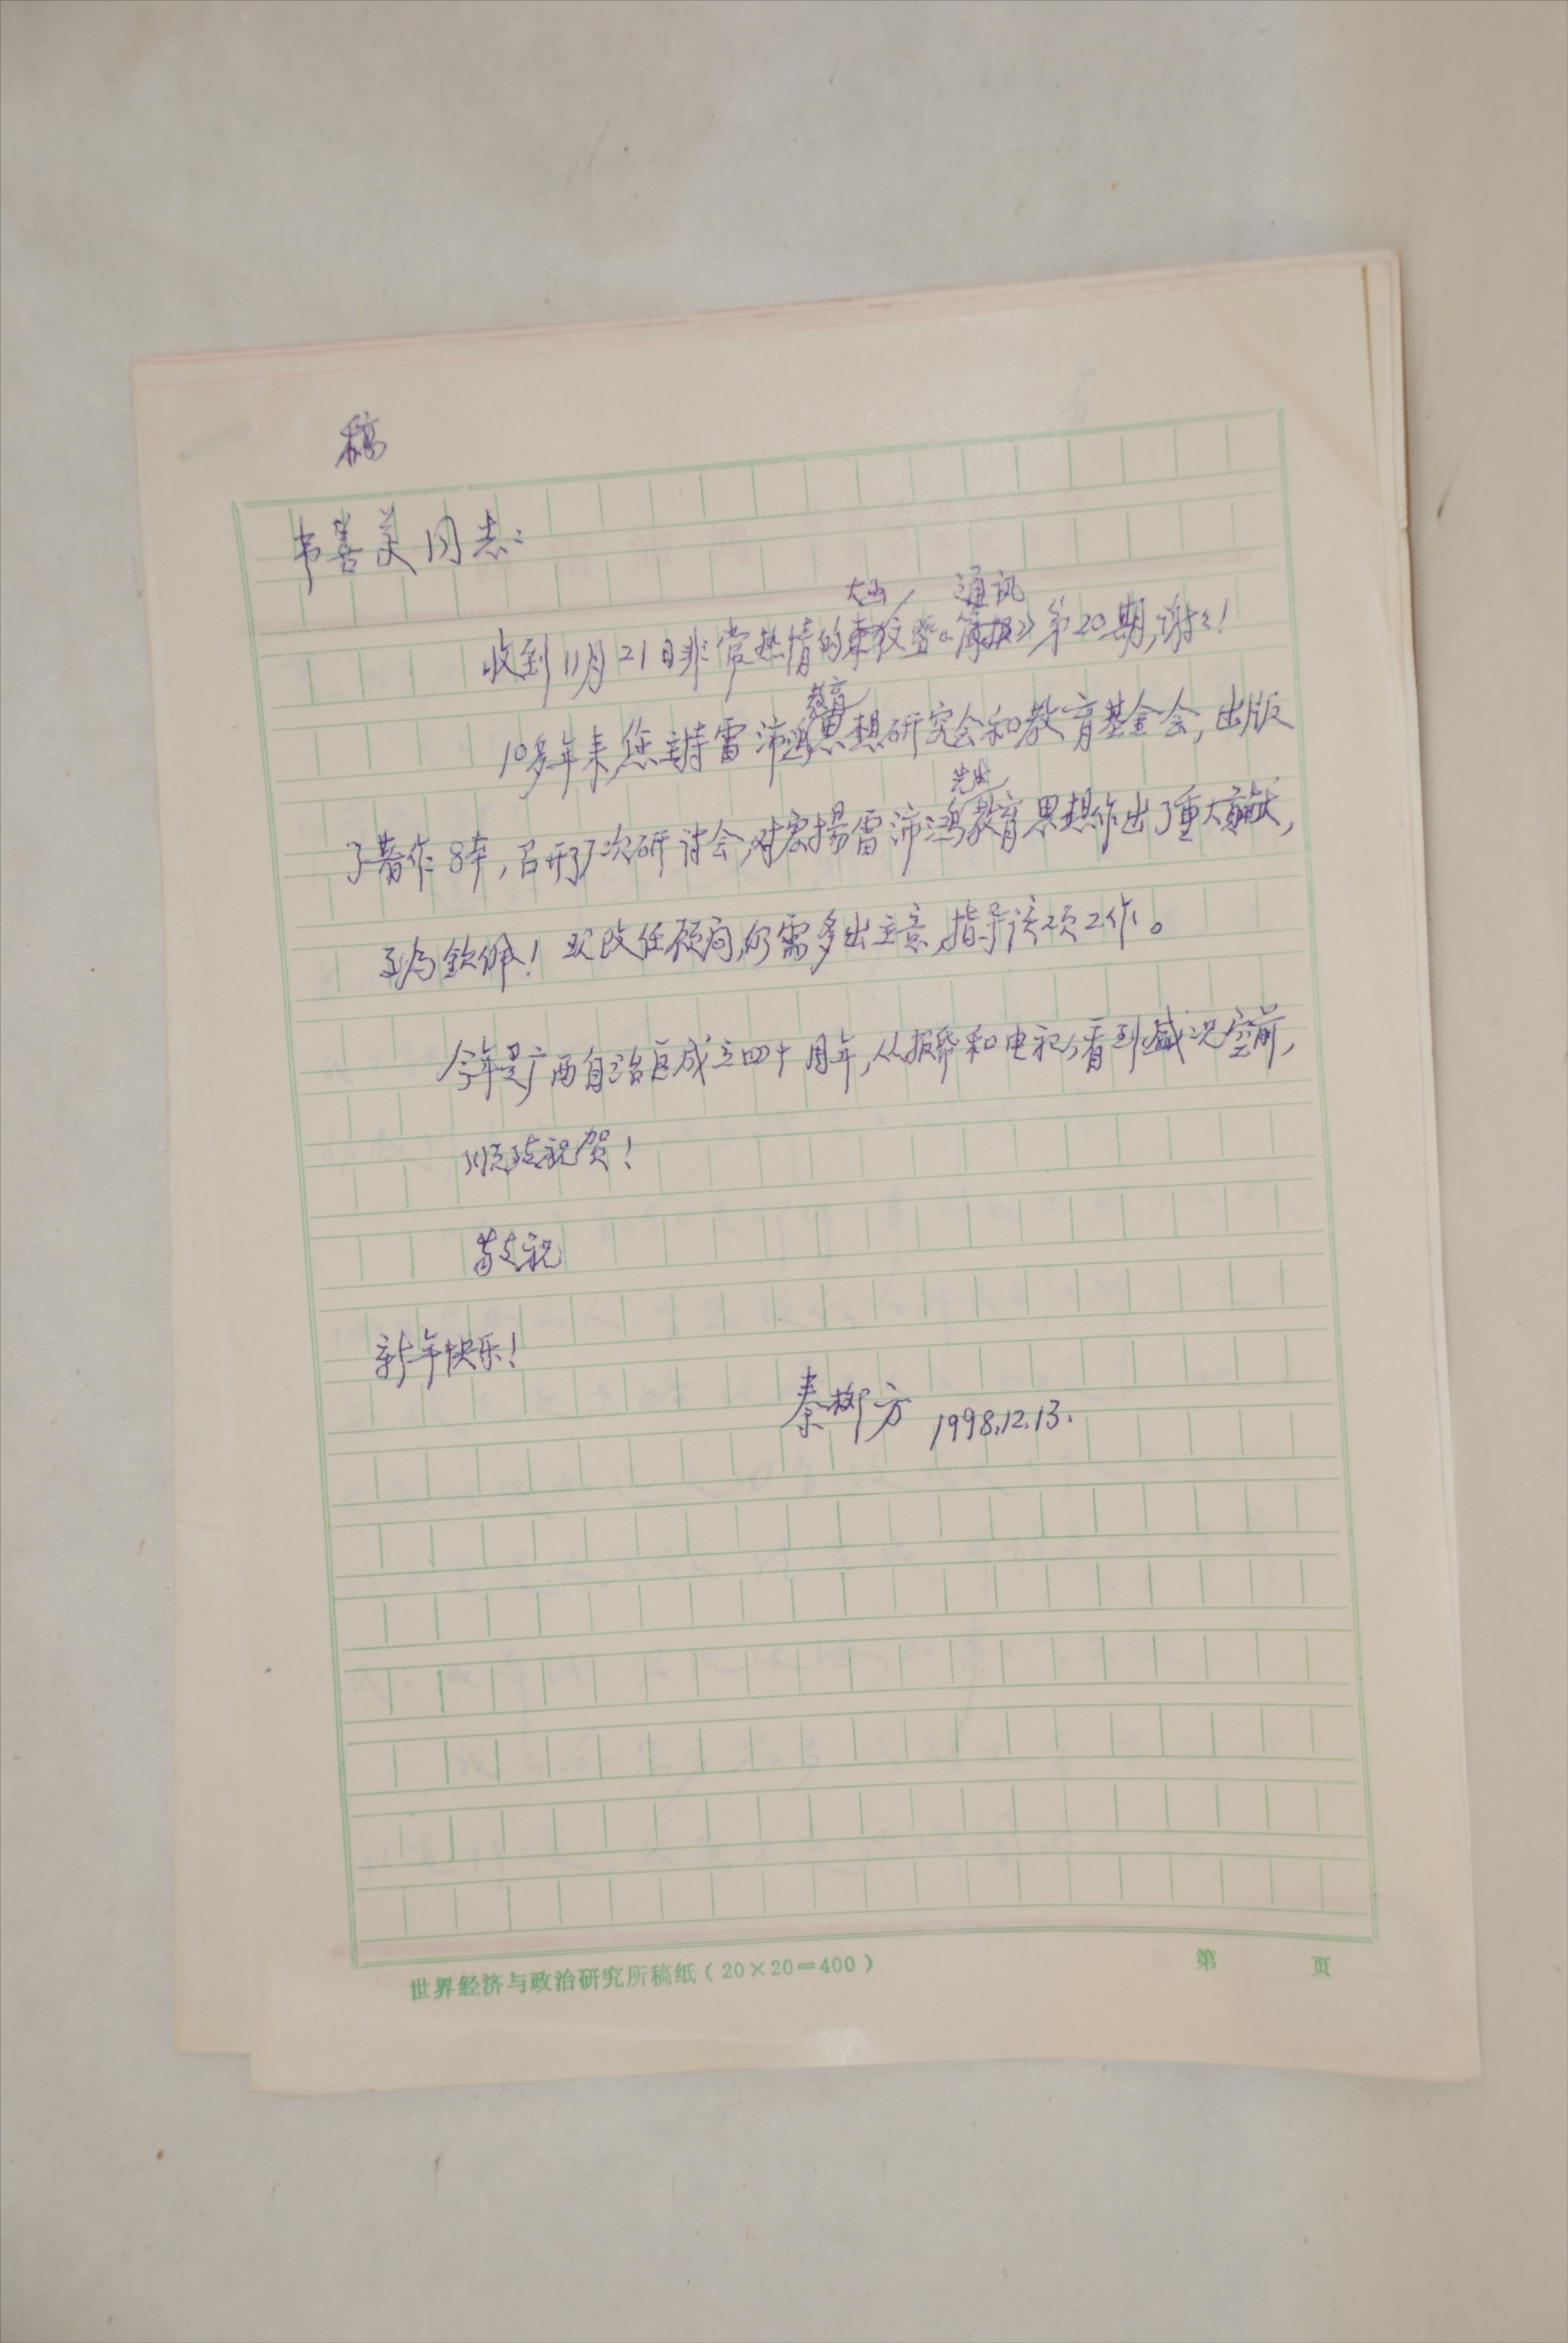 稿
韦善美同志：
大函 通讯
收到11月21日非常热情的来信暨《简报》第20期，谢谢！
教育
10多年来，您主持雷沛鸿思想研究会和教育基金会，出版
先生
了著作8本，召开了7次研讨会，对宏扬雷沛鸿教育思想作出了重大贡献，
至为钦佩！现改任顾问，仍需多出主意，指导该项工作。
今年是广西自治区成立四十周年，从报纸和电视看到盛况空前，
顺致祝贺！
敬祝
新年快乐！
秦柳方 1998.12.13.
世界经济与政治研究所稿纸（20×20=400） 第 页